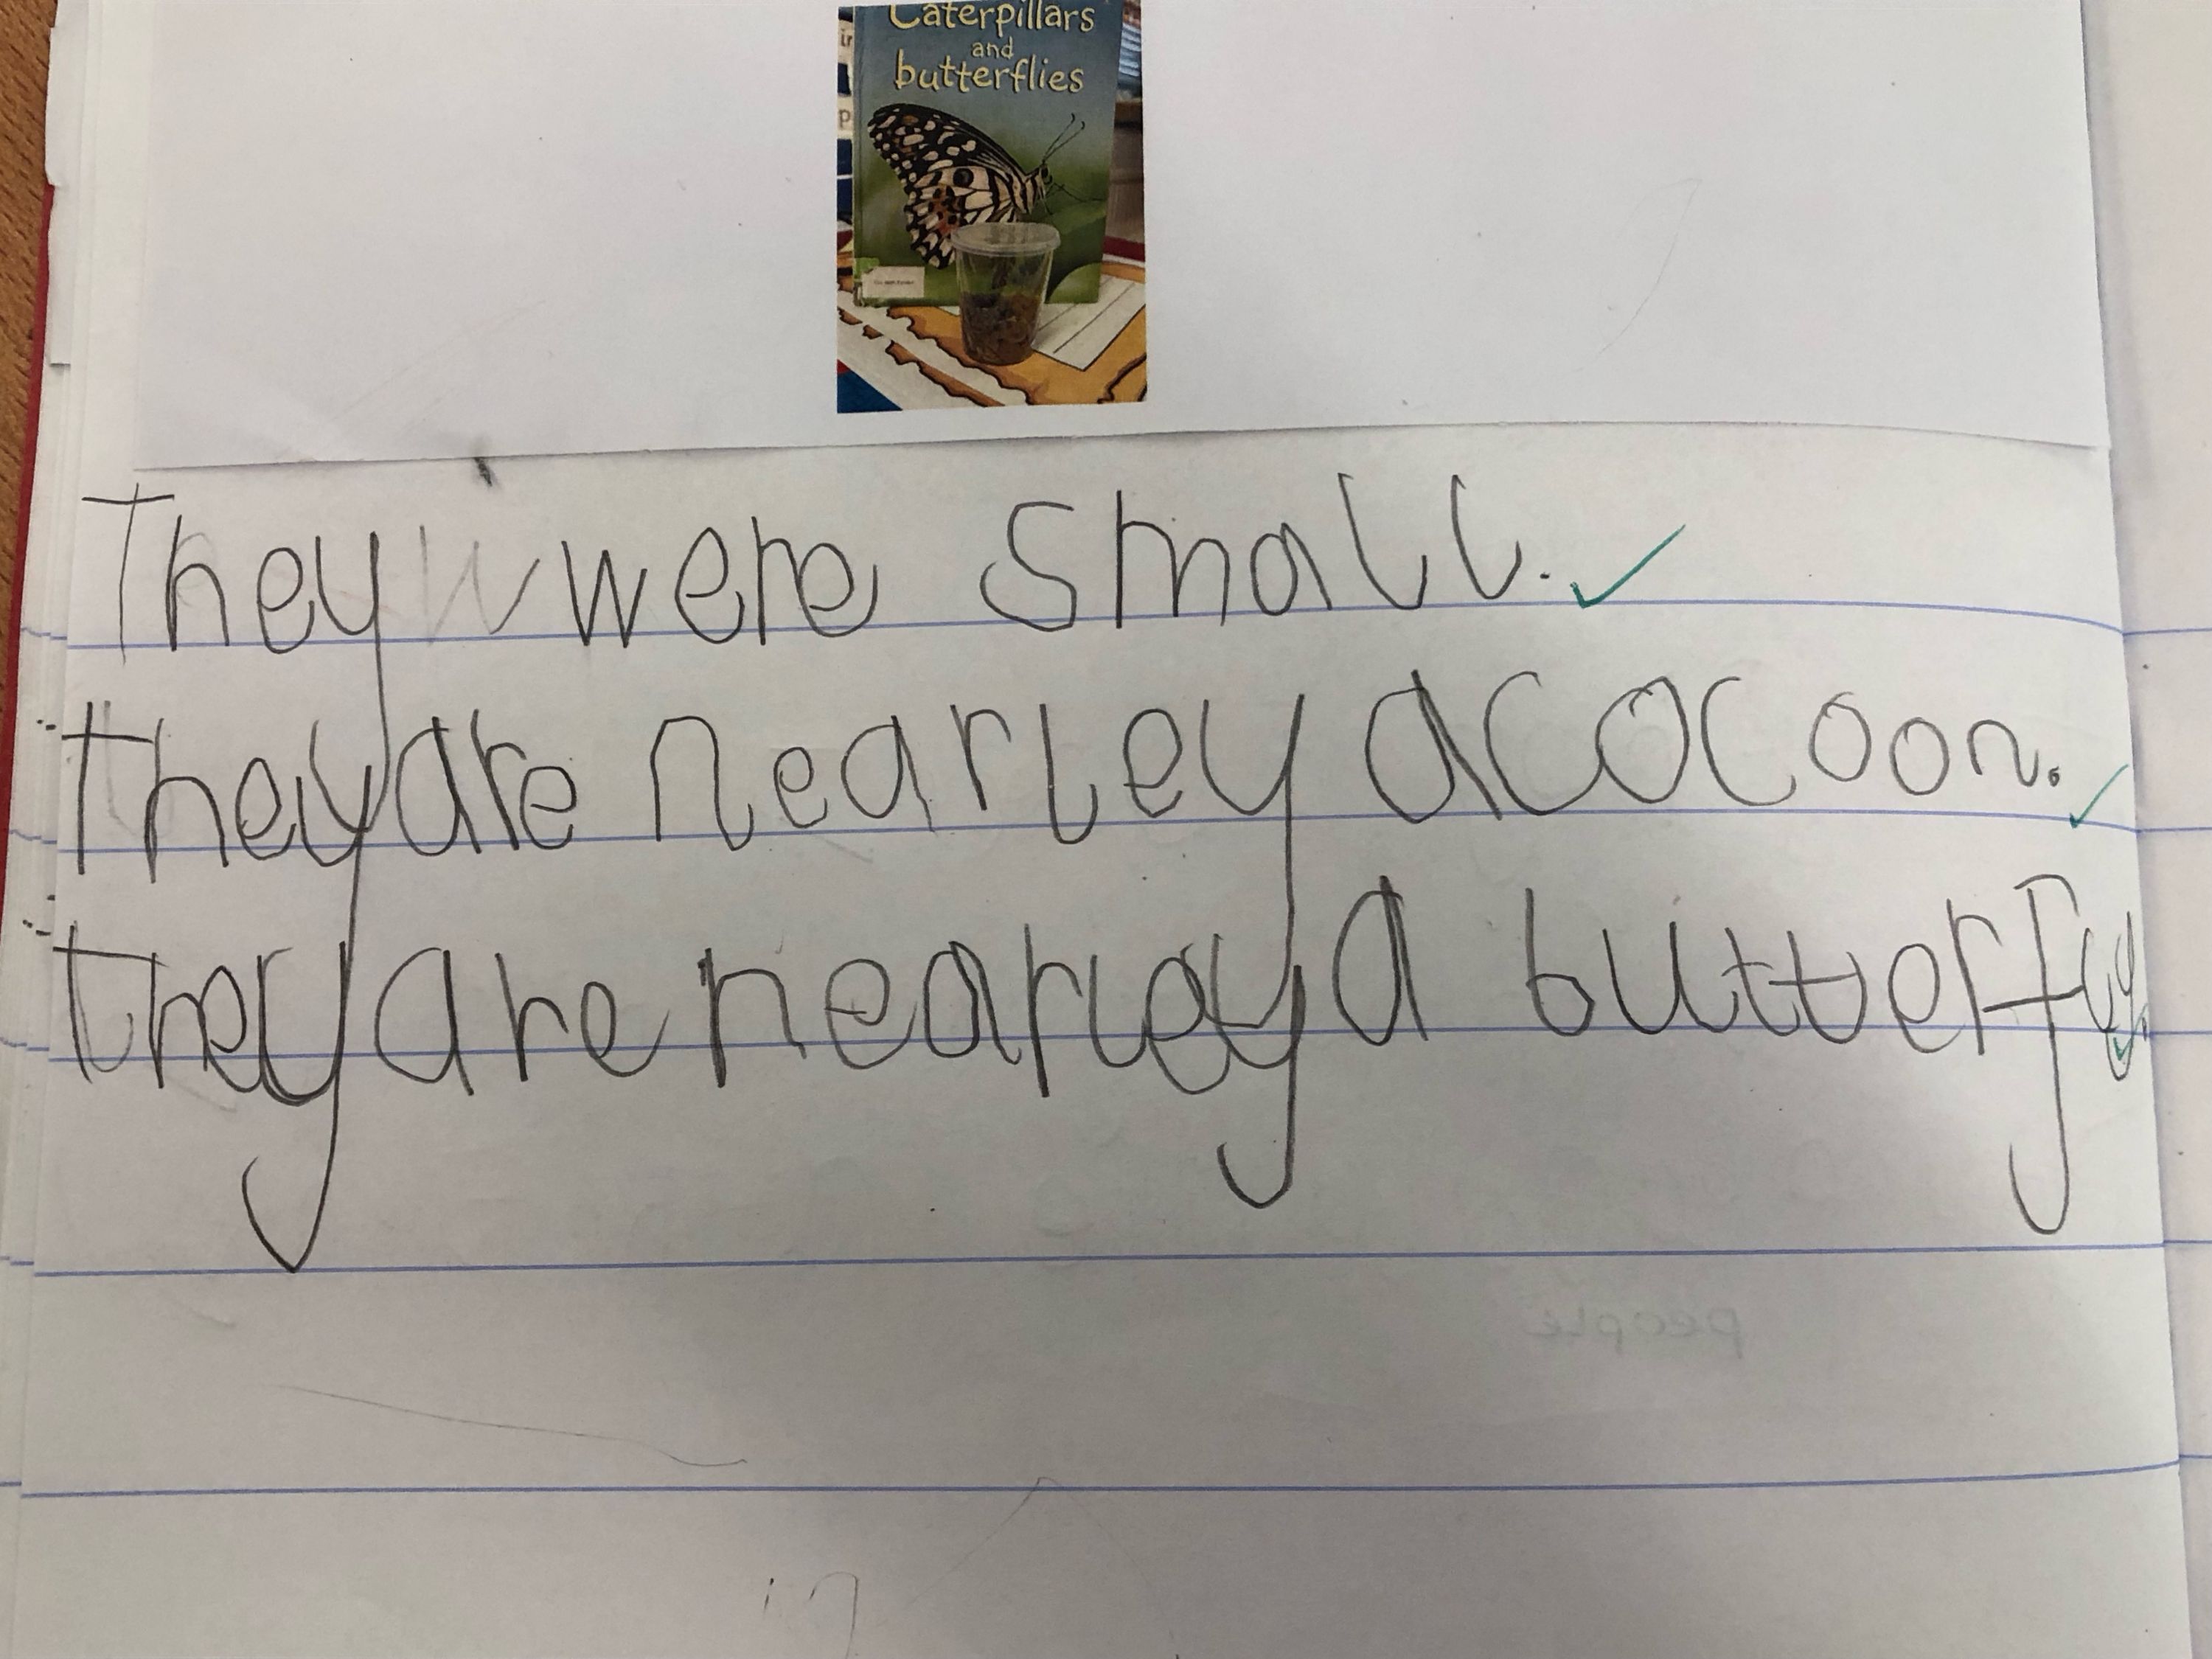 Caterpillars
and
butterflies
They were small.
They are nearley a cocoon.
They are nearley a butterfly.
people